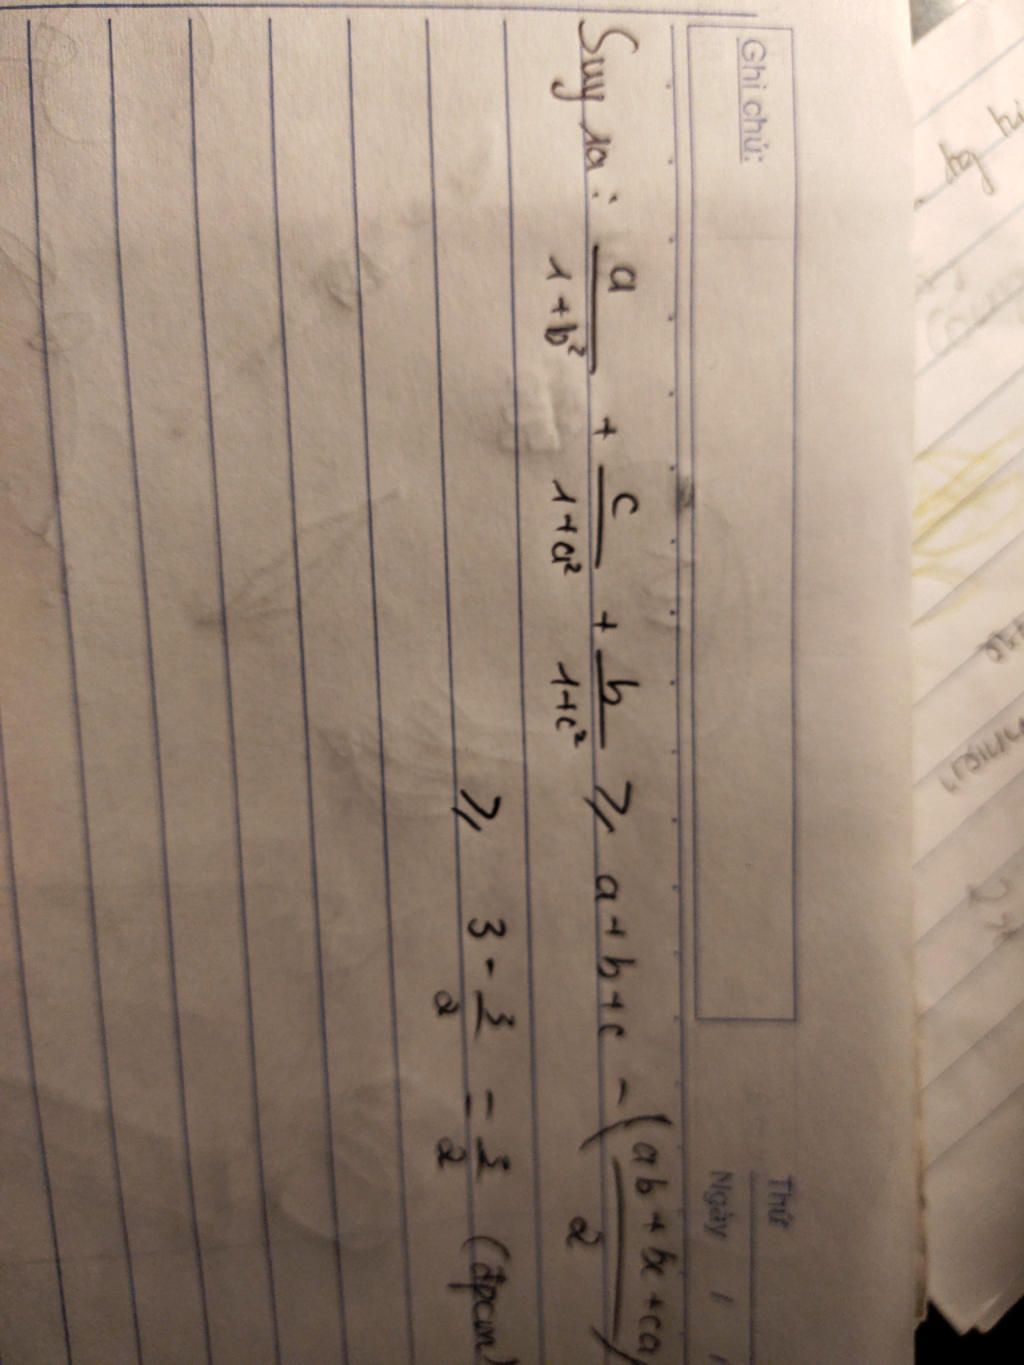 Ghi chú:
Thứ
Ngày / /
Suy ra: a/(1+b²) + c/(1+a²) + b/(1+c²) ≥ a+b+c - (ab+bc+ca)/2
≥ 3 - 3/2 = 3/2 (đpcm)